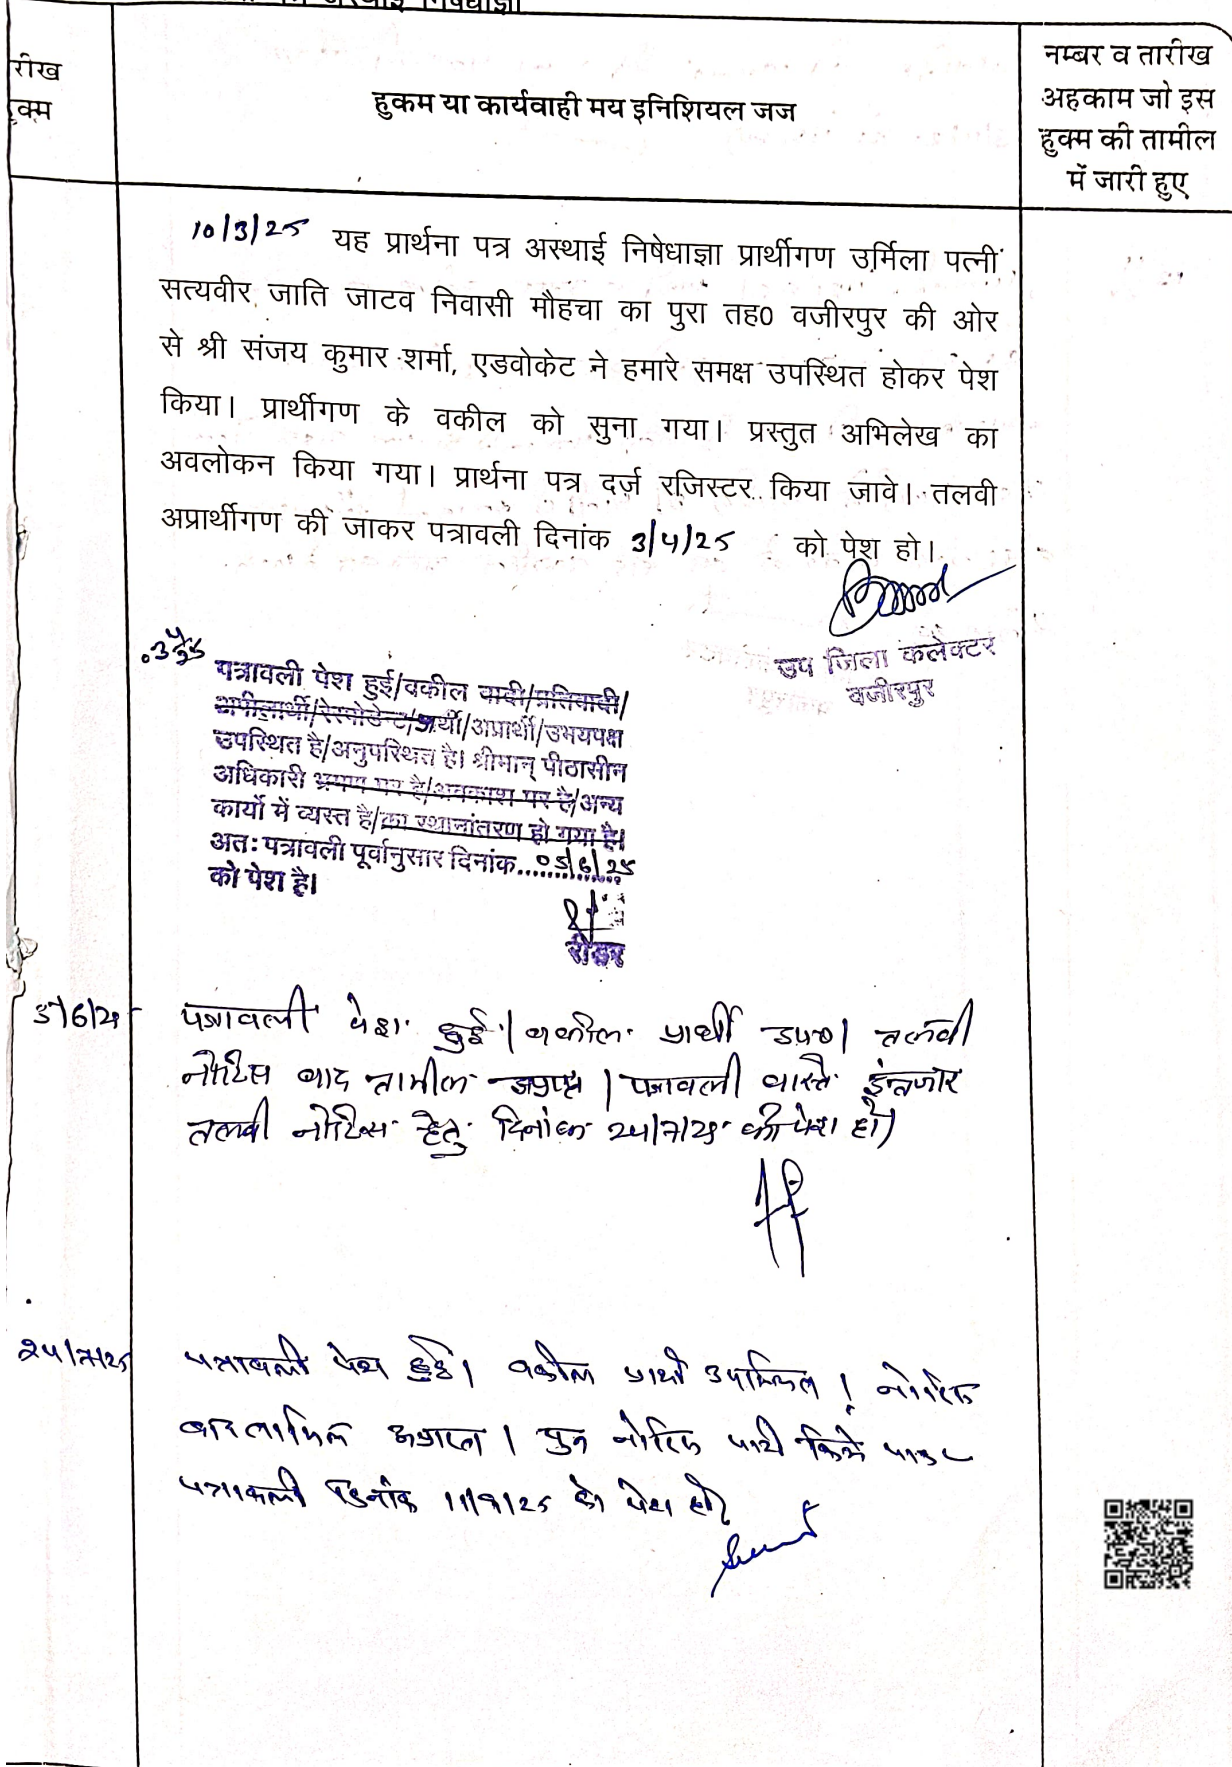 अस्थाई निषेधाज्ञा
रीख
हुक्म
हुकम या कार्यवाही मय इनिशियल जज
नम्बर व तारीख
अहकाम जो इस
हुक्म की तामील
में जारी हुए
10/3/25 यह प्रार्थना पत्र अस्थाई निषेधाज्ञा प्रार्थीगण उर्मिला पत्नी
सत्यवीर जाति जाटव निवासी मौहचा का पुरा तह0 वजीरपुर की ओर
से श्री संजय कुमार शर्मा, एडवोकेट ने हमारे समक्ष उपस्थित होकर पेश
किया। प्रार्थीगण के वकील को सुना गया। प्रस्तुत अभिलेख का
अवलोकन किया गया। प्रार्थना पत्र दर्ज रजिस्टर किया जावे। तलवी
अप्रार्थीगण की जाकर पत्रावली दिनांक 3/4/25 को पेश हो।
उप जिला कलेक्टर
वजीरपुर
पत्रावली पेश हुई/वकील वादी/प्रतिवादी/
अपीलार्थी/रेस्पोडेन्ट/प्रार्थी/अप्रार्थी/उभयपक्ष
उपस्थित है/अनुपस्थित है। श्रीमान् पीठासीन
अधिकारी भ्रमण पर है/अवकाश पर है/अन्य
कार्यो में व्यस्त है/का स्थानांतरण हो गया है।
अतः पत्रावली पूर्वानुसार दिनांक...05/6/25
को पेश है।
रीडर
5/6/25 पत्रावली पेश हुई। वकील प्रार्थी उप०। तलवी
नोटिस बाद तामील अप्राप्त। पत्रावली वास्ते इंन्तजार
तलवी नोटिस हेतु दिनांक 24/7/25 को पेश हो।
24/7/25 पत्रावली पेश हुई। वकील प्रार्थी उपस्थित। नोटिस
बाद तामिल अप्राप्त। पुन नोटिस जारी किये जाकर
पत्रावली दिनांक 11/9/25 को पेश हो।